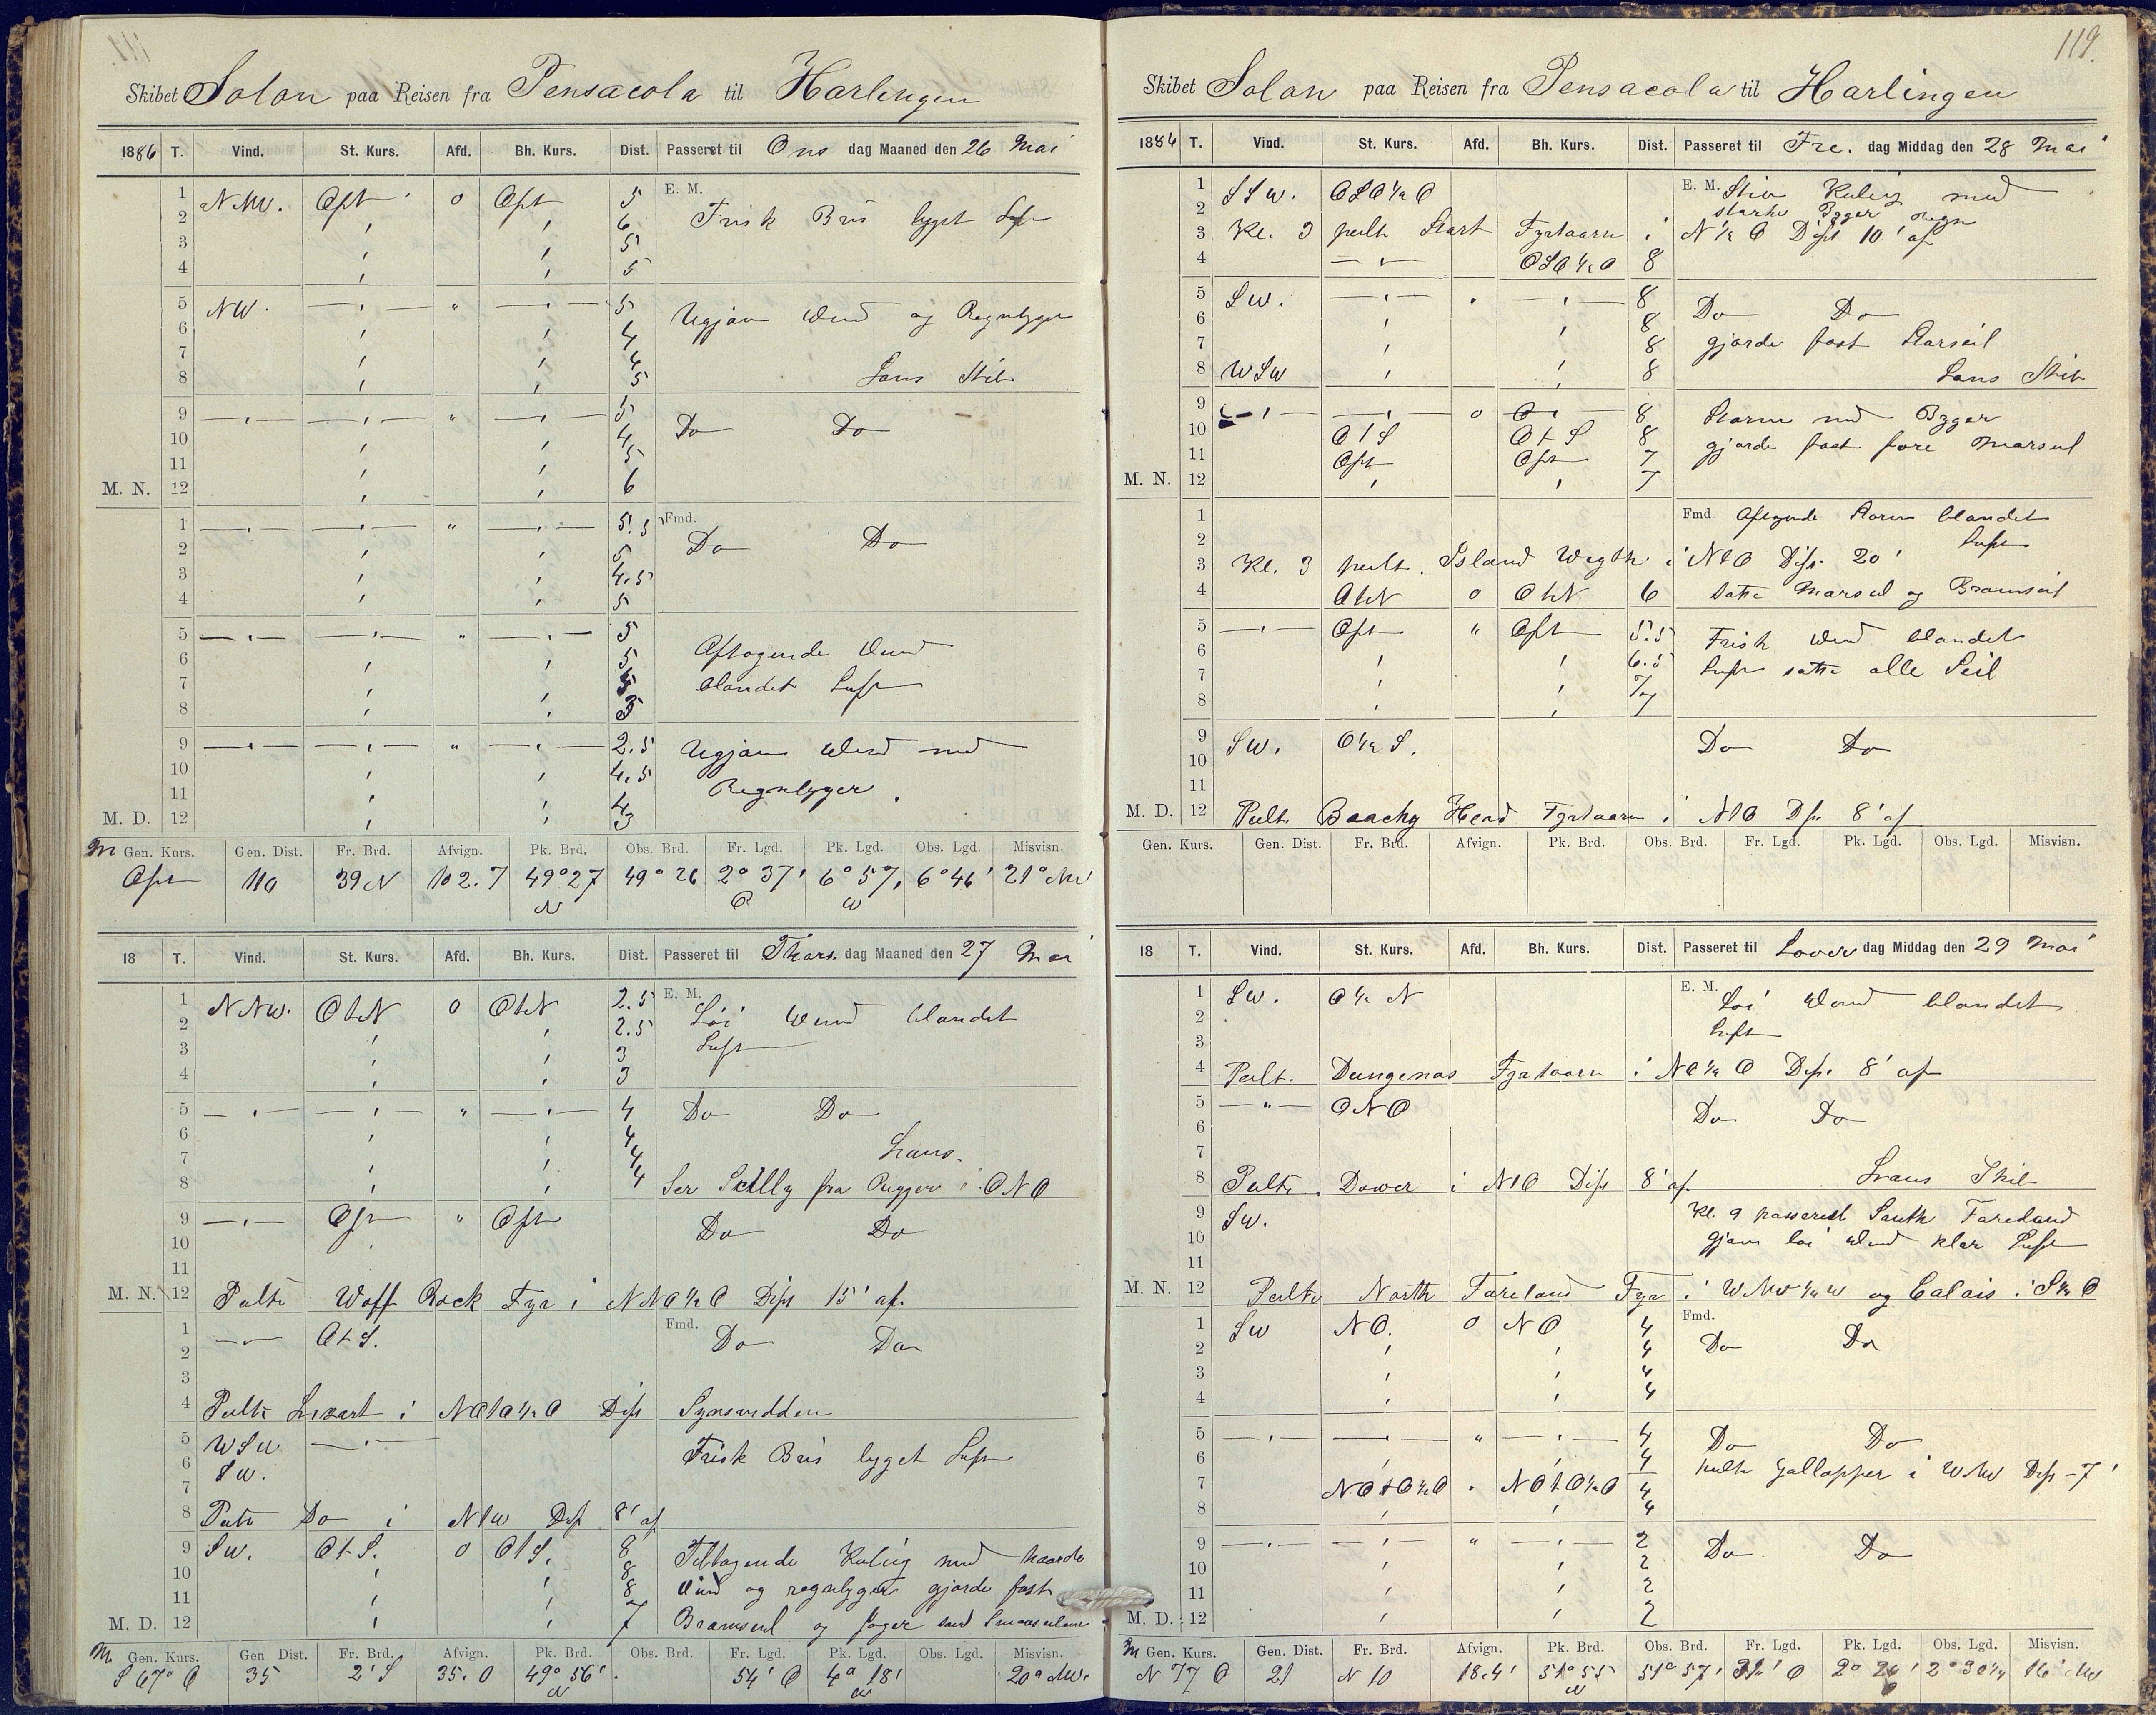 Skibet Solon paa Reisen fra Pensacola til Harlingen
1886 T. Vind. St. Kurs. Afd. Bh. Kurs. Dist. Passeret til Ons dag Maaned den 26 Mai
1 NNW. Ost o Ost 5 E. M.
2 6 Frisk Bris byget Luft
3 5
4 5
5 NW. 5 Ugjävn Vind og Regnbyger
6 4
7 4
8 5 Lans Skib
9 5 Do Do
10 4
11 5
M. N. 12 6
1 5.5 Fmd.
2 5 Do Do
3 4.5
4 5
5 5 Aftagende Vind
6 5
7 blandet Luft
8 3
9 2.5 Ugjävn Vind med
10 4.5 Regnbyger
11 4
M. D. 12 3
M Gen. Kurs. Gen. Dist. Fr. Brd. Afvign. Pk. Brd. Obs. Brd. Fr. Lgd. Pk. Lgd. Obs. Lgd. Misvisn.
Ost 110 39 N 102.7 49° 27 N 49° 26 2° 37' O 6° 57' W 6° 46' 21° NW
18 T. Vind. St. Kurs. Afd. Bh. Kurs. Dist. Passeret til Thors. dag Maaned den 27 Mai
1 NNW. OtN o OtN 2.5 E. M.
2 2.5 Löi Vind blandet
3 3 Luft
4 3
5 4 Do Do
6 4
7 4 Lans.
8 4 Ser Scilly fra Ruggen i ONO
9 Ost " Ost Do Do
10
11
M. N. 12 Peilte Wolf Rock Fyr i NNO½O Dist 15' af.
1 OtS. Fmd. Do Do
2
3
4 Peilte Lizart i NOtO½O Dist Synsvidden
5 WSW
6 SW. Frisk Bris byget Luft
7
8 Peilte Do i NtW Dist 8' af
9 SW. OtS. o OtS. 8 Tiltagende Kuling med haarde
10 8
11 8 Vind og regnbyger gjorde fast
M. D. 12 7 Bramseil og Jager samt Smaaseilene
M. Gen. Kurs. Gen Dist. Fr. Brd. Afvign. Pk. Brd. Obs. Brd. Fr. Lgd. Pk. Lgd. Obs. Lgd. Misvisn.
S 67° O 35 2' S 35. O 49° 56' N 54' O 4° 18' W 20° NW.
119.
Skibet Solon paa Reisen fra Pensacola til Harlingen
1886 T. Vind. St. Kurs. Afd. Bh. Kurs. Dist. Passeret til Fre. dag Middag den 28 Mai
1 SSW. OSO½O E. M. Stiv Kuling med
2 starke Byger Regn
3 Kl. 3 peilte Start Fyrtaarn i N½O Dist 10' af
4 OSO½O 8
5 SW. 8 Do Do
6 8
7 8 gjorde fast Storseil
8 WSW 8 Lans Skib
9 o 8 Storm med Byger
10 OtS OtS 8
11 Ost Ost 7 gjorde fast fore Marseil
M. N. 12 7
1 Fmd. Aftagende Storm blandet
2 Luft
3 Kl. 3 peilt. Island Wigth i NtO Dist. 20'
4 OtN o OtN 6 satte Marseil og Bramseil
5 Ost " Ost 5.5 Frisk Vind blandet
6 6.5
7 7 Luft satte alle Seil
8 7
9 SW. O½S. Do Do
10
11
M. D. 12 Peilt. Beachy Head Fyrtaarn i NtO Dist 8' af
Gen. Kurs. Gen. Dist. Fr. Brd. Afvign. Pk. Brd. Obs. Brd. Fr. Lgd. Pk. Lgd. Obs. Lgd. Misvisn.
18 T. Vind. St. Kurs. Afd. Bh. Kurs. Dist. Passeret til Löver dag Middag den 29 Mai
1 SW. O½N E. M. Löi Vind blandet
2 Luft
3
4 Peilt. Dungenas Fyrtaarn i NO½O Dist. 8' af
5 ONO Do Do
6
7
8 Peilte Dower i NtO Dist 8' af. Lrans Skib
9 SW. Kl. 9 passeret South Foreland
10 gjävn löi Vind klar Luft
11
M. N. 12 Peilte North Foreland Fyr i WNW½W og Calais i S½O
1 SW NO. o NO 4 Fmd.
2 4 Do Do
3 4
4 4
5 " 4 Do Do
6 4 peilte Gallapper i WNW Dist 7'
7 NOtO½O NOtO½O 4
8 4
9 " 2 Do Do
10 2
11 2
M. D. 12 2
M Gen. Kurs. Gen. Dist. Fr. Brd. Afvign. Pk. Brd. Obs. Brd. Fr. Lgd. Pk. Lgd. Obs. Lgd. Misvisn.
N 77 O 21 N 10 18.4' 51° 55 N 51° 57' O 2° 2° 30¼ 16° NW